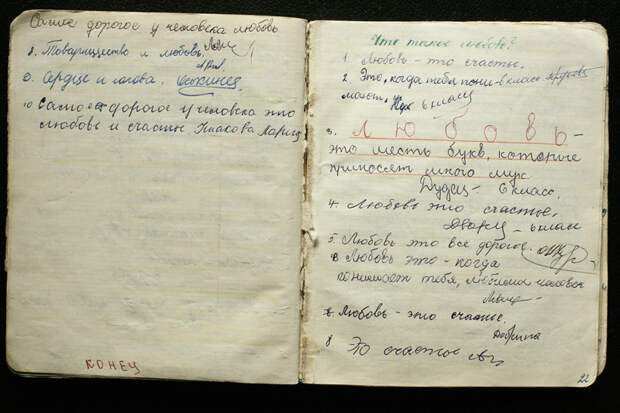 Самое дорогое у человека любовь
8. Товарищество и любовь.
9. Сердце и голова.
10 Самое дорогое у человека это
любовь и счастье Лариса
КОНЕЦ
Что такое любовь?
1. Любовь – это счастье.
2. Это, когда тебя пони- в класс
мают. 6 класс
3. Любовь –
это шесть букв, которые
приносят много мук.
6 класс.
4. Любовь это счастье.
6 класс
5. Любовь это всё дорогое.
6 Любовь это – когда
понимает тебя, любимый человек
7. Любовь – это счастье.
8 Это счастье
22